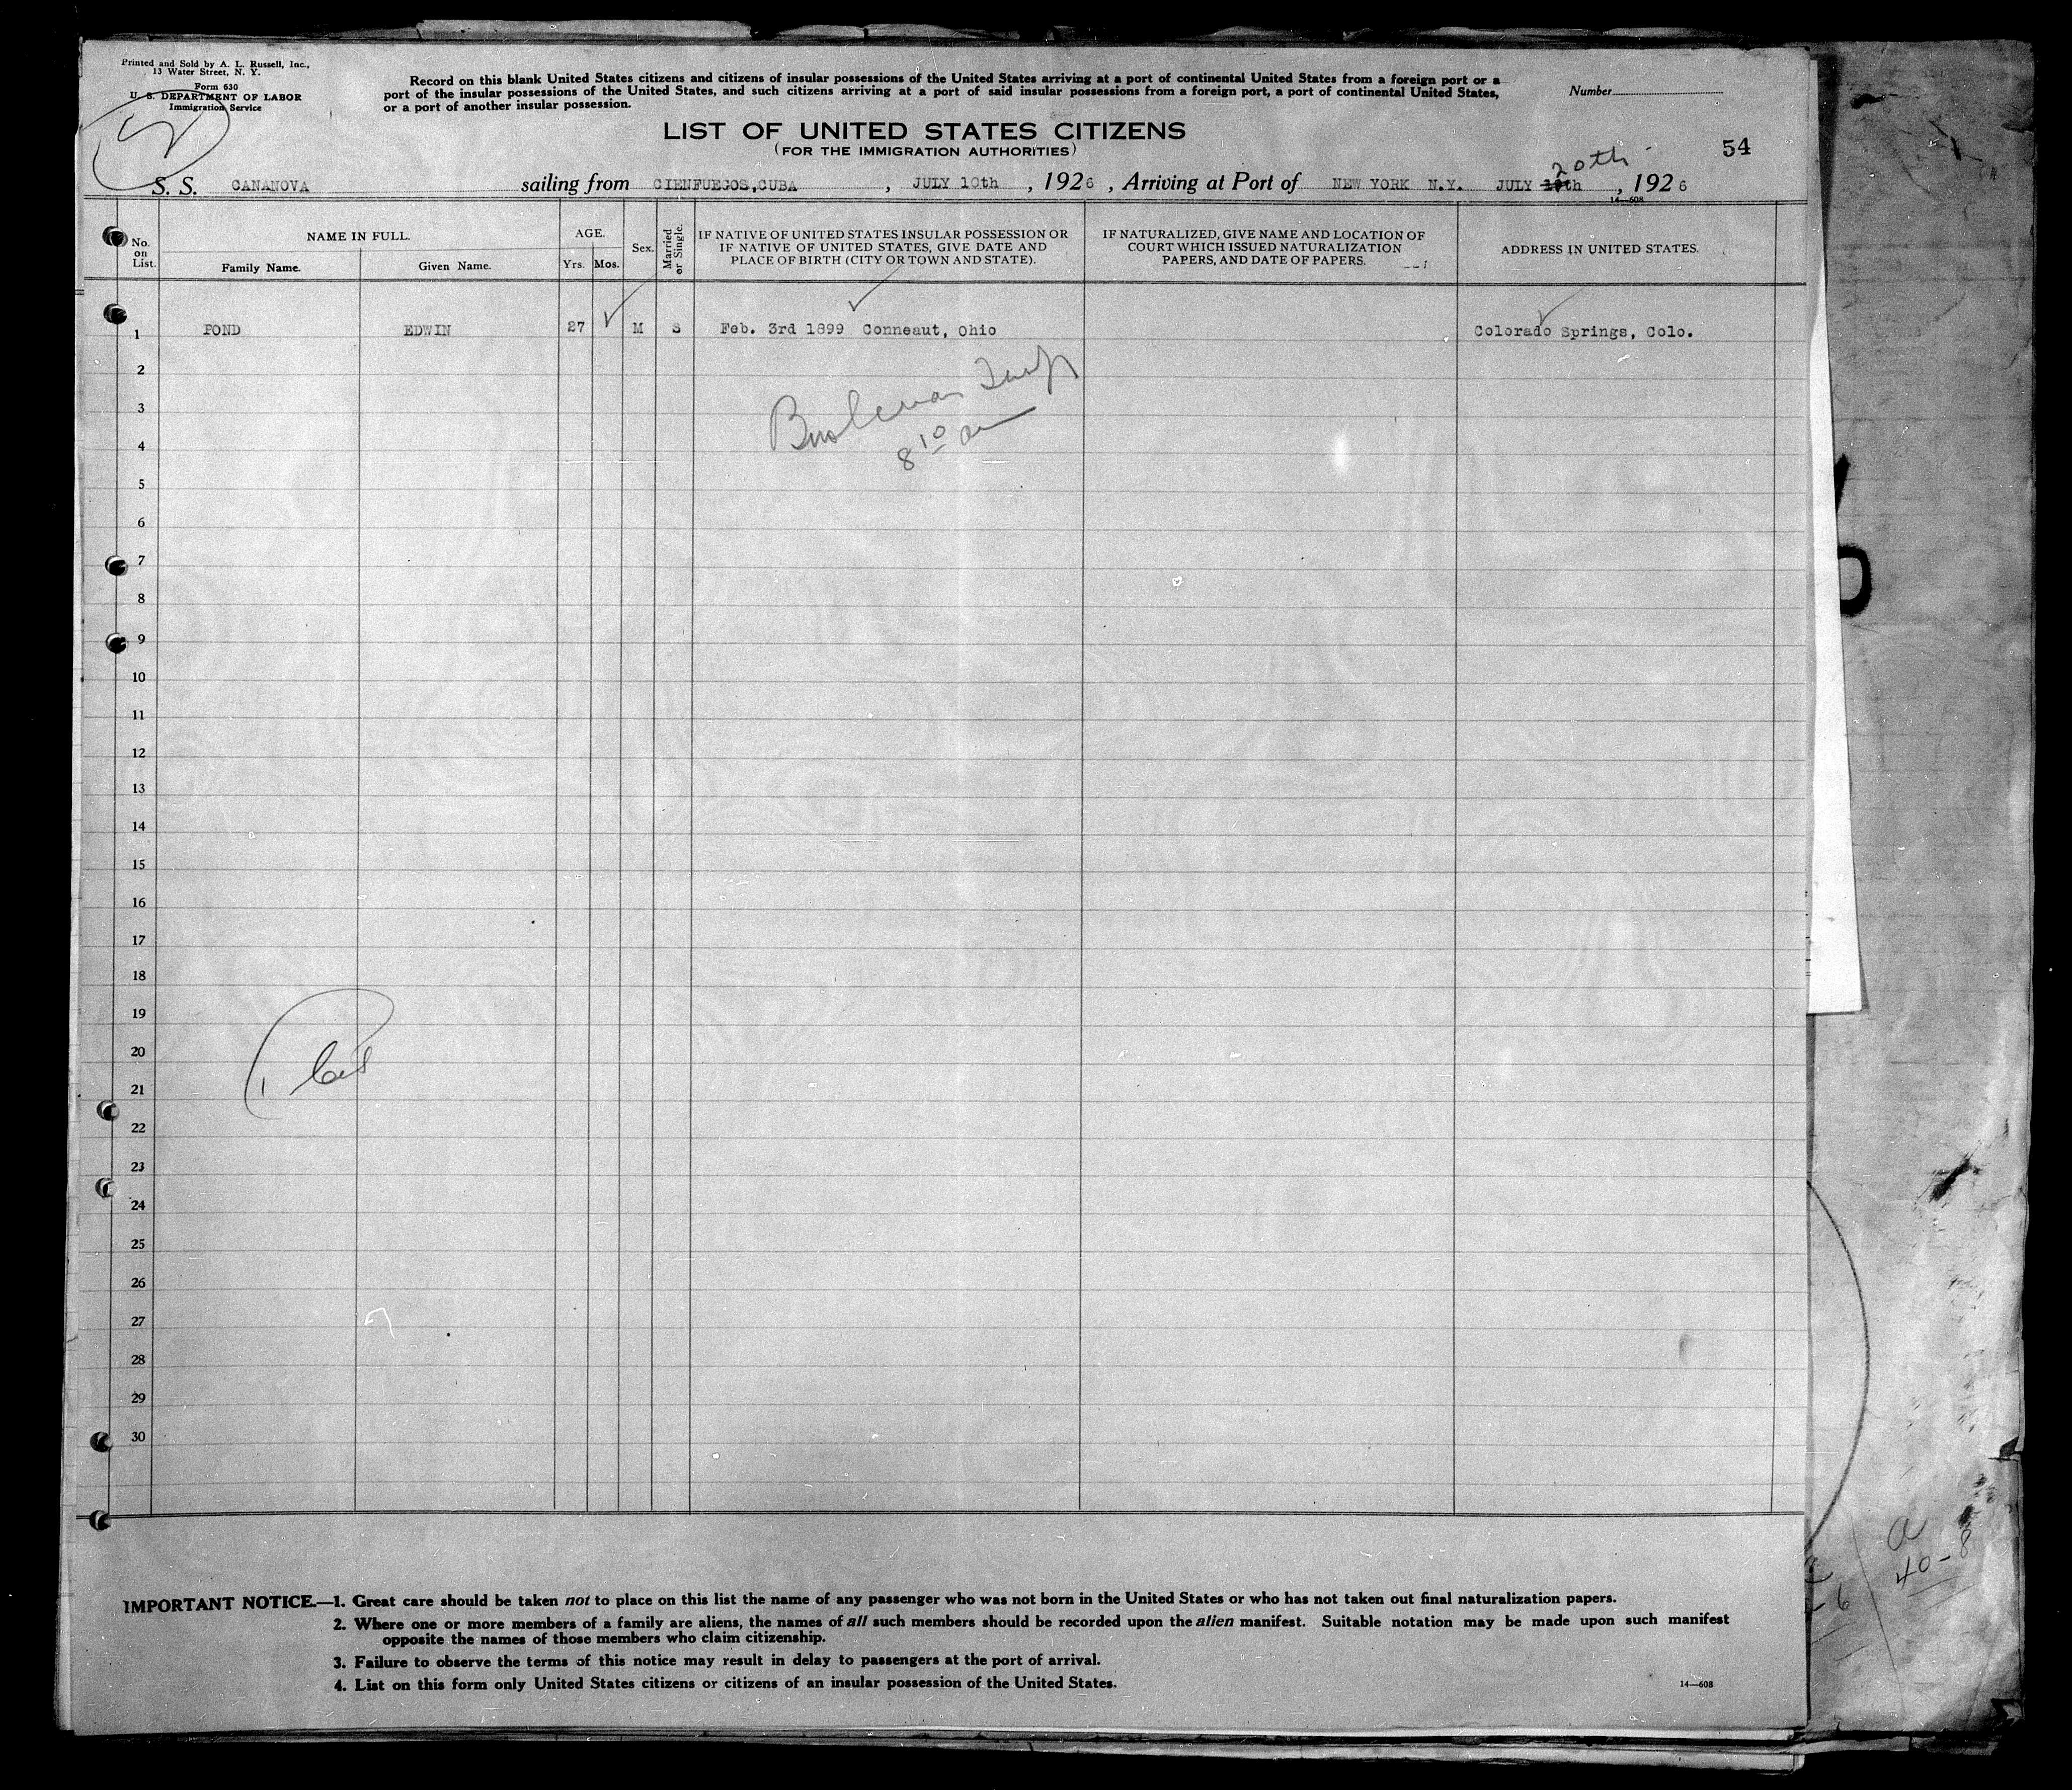 Printed and Sold by A. L. Russell, Inc.,
13 Water Street, N. Y.
Form 630
U. S. DEPARTMENT OF LABOR
Immigration Service
Record on this blank United States citizens and citizens of insular possessions of the United States arriving at a port of continental United States from a foreign port or a
port of the insular possessions of the United States, and such citizens arriving at a port of said insular possessions from a foreign port, a port of continental United States,
or a port of another insular possession.
Number
LIST OF UNITED STATES CITIZENS
(FOR THE IMMIGRATION AUTHORITIES)
54
20th
S. S. CANANOVA sailing from CIENFUEGOS,CUBA, JULY 10th, 1926, Arriving at Port of NEW YORK N.Y. JULY th, 1926
14—608
No. on List.
NAME IN FULL.
Family Name.
Given Name.
AGE.
Yrs. Mos.
Sex.
Married or Single.
IF NATIVE OF UNITED STATES INSULAR POSSESSION OR
IF NATIVE OF UNITED STATES, GIVE DATE AND
PLACE OF BIRTH (CITY OR TOWN AND STATE).
IF NATURALIZED, GIVE NAME AND LOCATION OF
COURT WHICH ISSUED NATURALIZATION
PAPERS, AND DATE OF PAPERS.
ADDRESS IN UNITED STATES.
1 POND EDWIN 27 M S Feb. 3rd 1899 Conneaut, Ohio Colorado Springs, Colo.
2
3
4
8 10 am
5
6
7
8
9
10
11
12
13
14
15
16
17
18
19
20
21
22
23
24
25
26
27
28
29
30
IMPORTANT NOTICE.—1. Great care should be taken not to place on this list the name of any passenger who was not born in the United States or who has not taken out final naturalization papers.
2. Where one or more members of a family are aliens, the names of all such members should be recorded upon the alien manifest. Suitable notation may be made upon such manifest
opposite the names of those members who claim citizenship.
3. Failure to observe the terms of this notice may result in delay to passengers at the port of arrival.
4. List on this form only United States citizens or citizens of an insular possession of the United States.
14—608
a
40-8
6